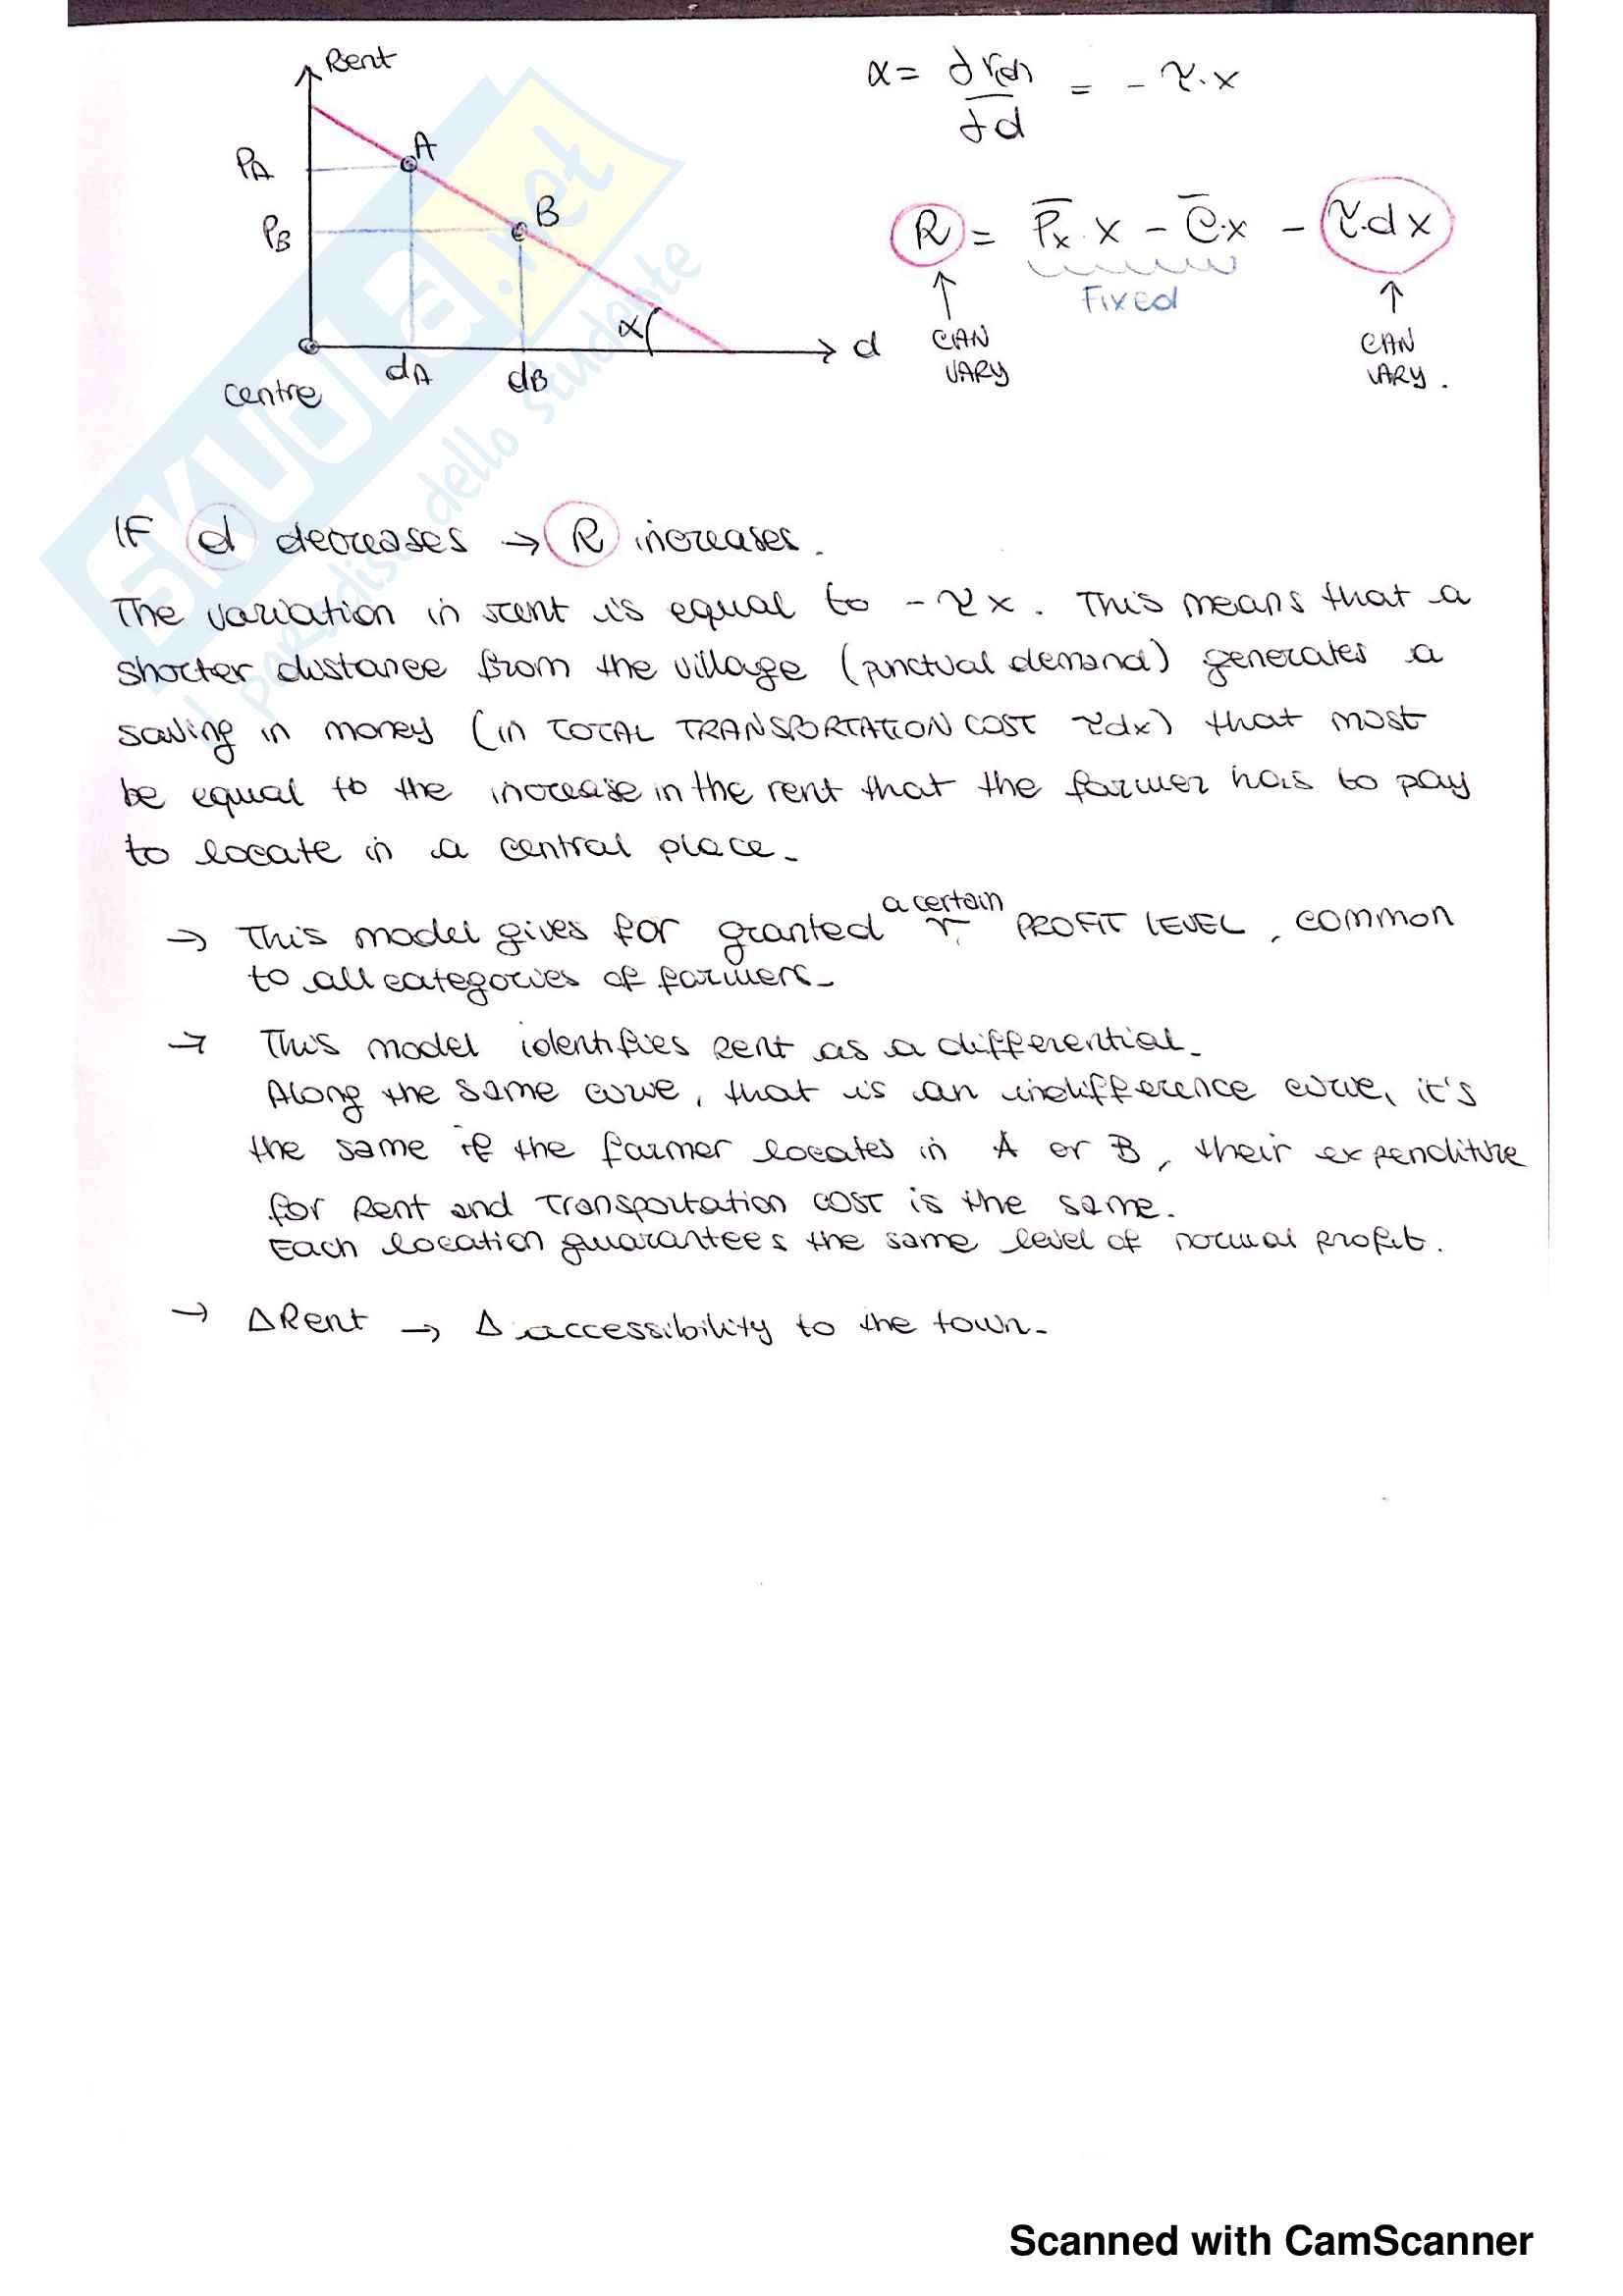 Rent
α = ∂r(d) / ∂d = - τ·x
PA
A
PB
B
R = P̄x·x - c̄·x - τ·dx
Fixed
α
d
CAN VARY
CAN VARY.
dA
dB
Centre
SKUOLA.net
Il paradiso dello studente
IF d decreases → R increases.
The variation in rent is equal to - τx. This means that a
shorter distance from the village (punctual demand) generates a
saving in money (in TOTAL TRANSPORTATION COST τdx) that most
be equal to the increase in the rent that the farmer has to pay
to locate in a central place.
→ This model gives for granted a certain r PROFIT LEVEL, common
to all categories of farmers.
→ This model identifies rent as a differential.
Along the same curve, that is an indifference curve, it's
the same if the farmer locates in A or B, their expenditure
for Rent and Transportation cost is the same.
Each location guarantees the same level of normal profit.
→ ΔRent → Δ accessibility to the town.
Scanned with CamScanner